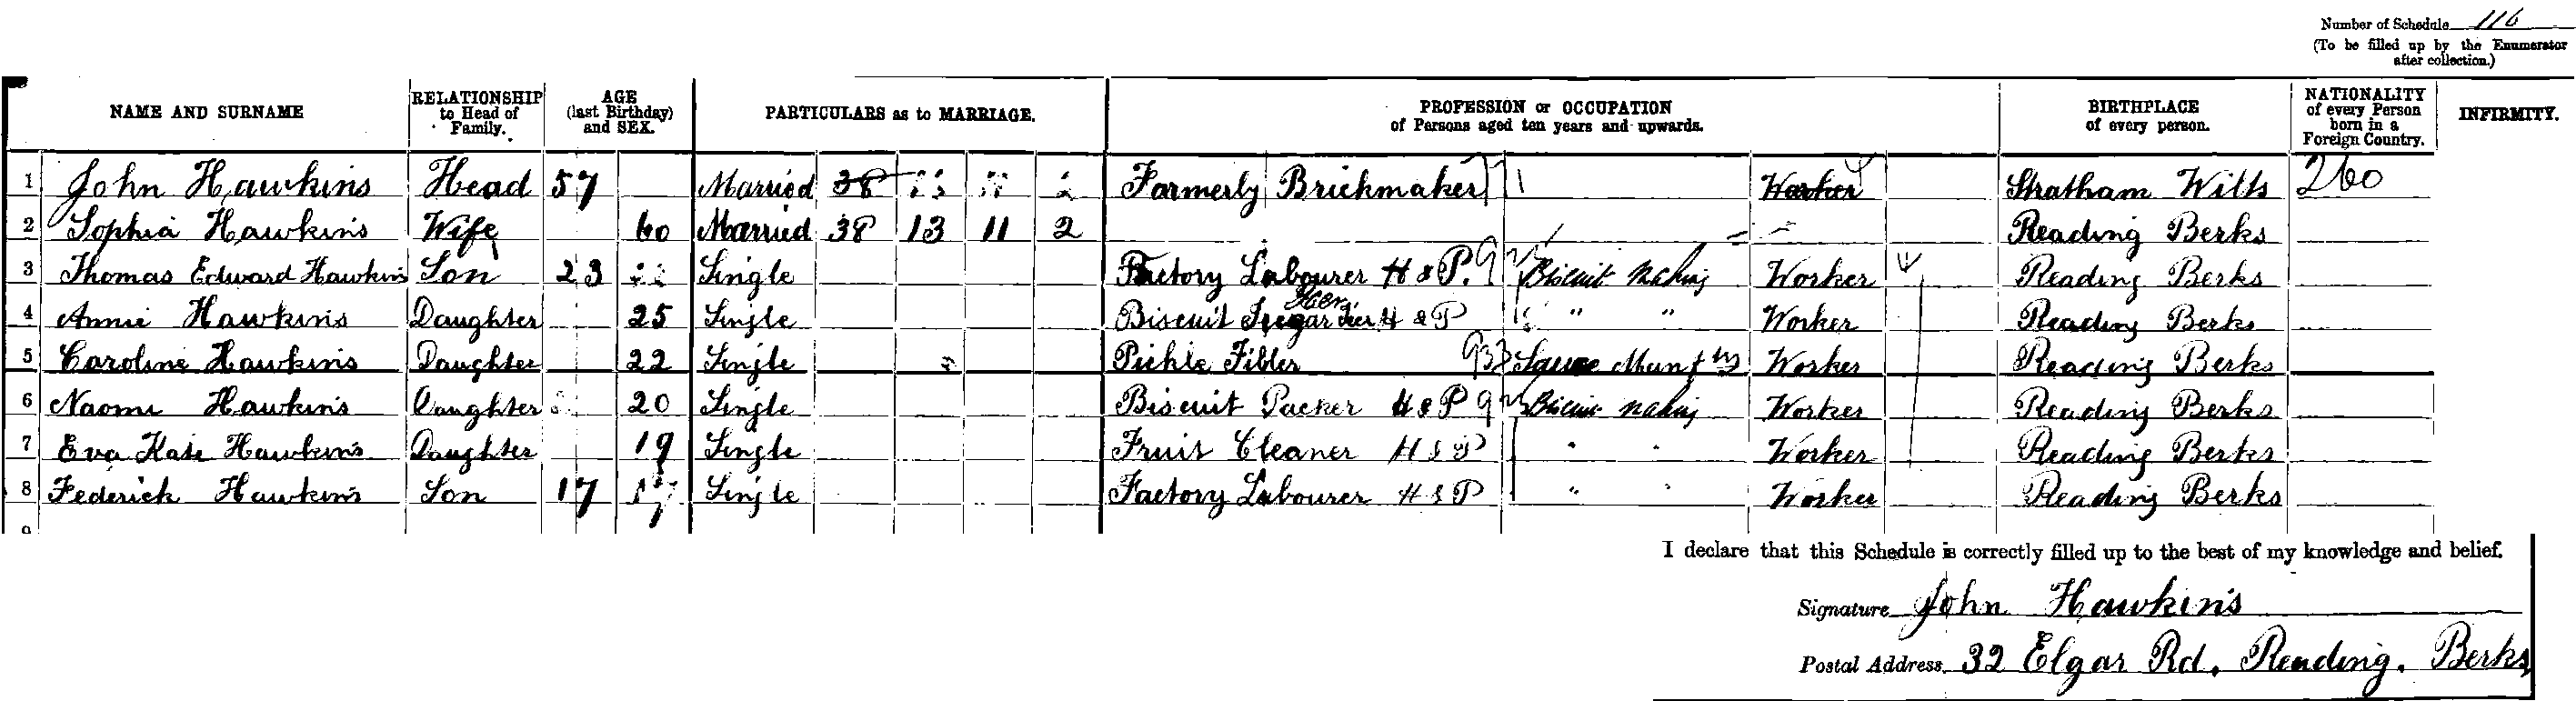 Number of Schedule 116
(To be filled up by the Enumerator
after collection.)
NAME AND SURNAME RELATIONSHIP to Head of Family. AGE (last Birthday) and SEX. PARTICULARS as to MARRIAGE. PROFESSION or OCCUPATION of Persons aged ten years and upwards. BIRTHPLACE of every person. NATIONALITY of every Person born in a Foreign Country. INFIRMITY.
1 John Hawkins Head 57 Married 38 Formerly Brickmaker Worker Stratham Wilts 260
2 Sophia Hawkins Wife 60 Married 38 13 11 2 Reading Berks
3 Thomas Edward Hawkins Son 23 Single Factory Labourer H & P. Biscuit Making Worker Reading Berks
4 Annie Hawkins Daughter 25 Single Biscuit H & P " " Worker Reading Berks
5 Caroline Hawkins Daughter 22 Single Pickle Filler Sauce Manf Worker Reading Berks
6 Naomi Hawkins Daughter 20 Single Biscuit Packer H & P Biscuit Making Worker Reading Berks
7 Eva Kate Hawkins Daughter 19 Single Fruit Cleaner H & P " " Worker Reading Berks
8 Federick Hawkins Son 17 17 Single Factory Labourer H & P " " Worker Reading Berks
9
I declare that this Schedule is correctly filled up to the best of my knowledge and belief.
Signature John Hawkins
Postal Address 32 Elgar Rd, Reading. Berks